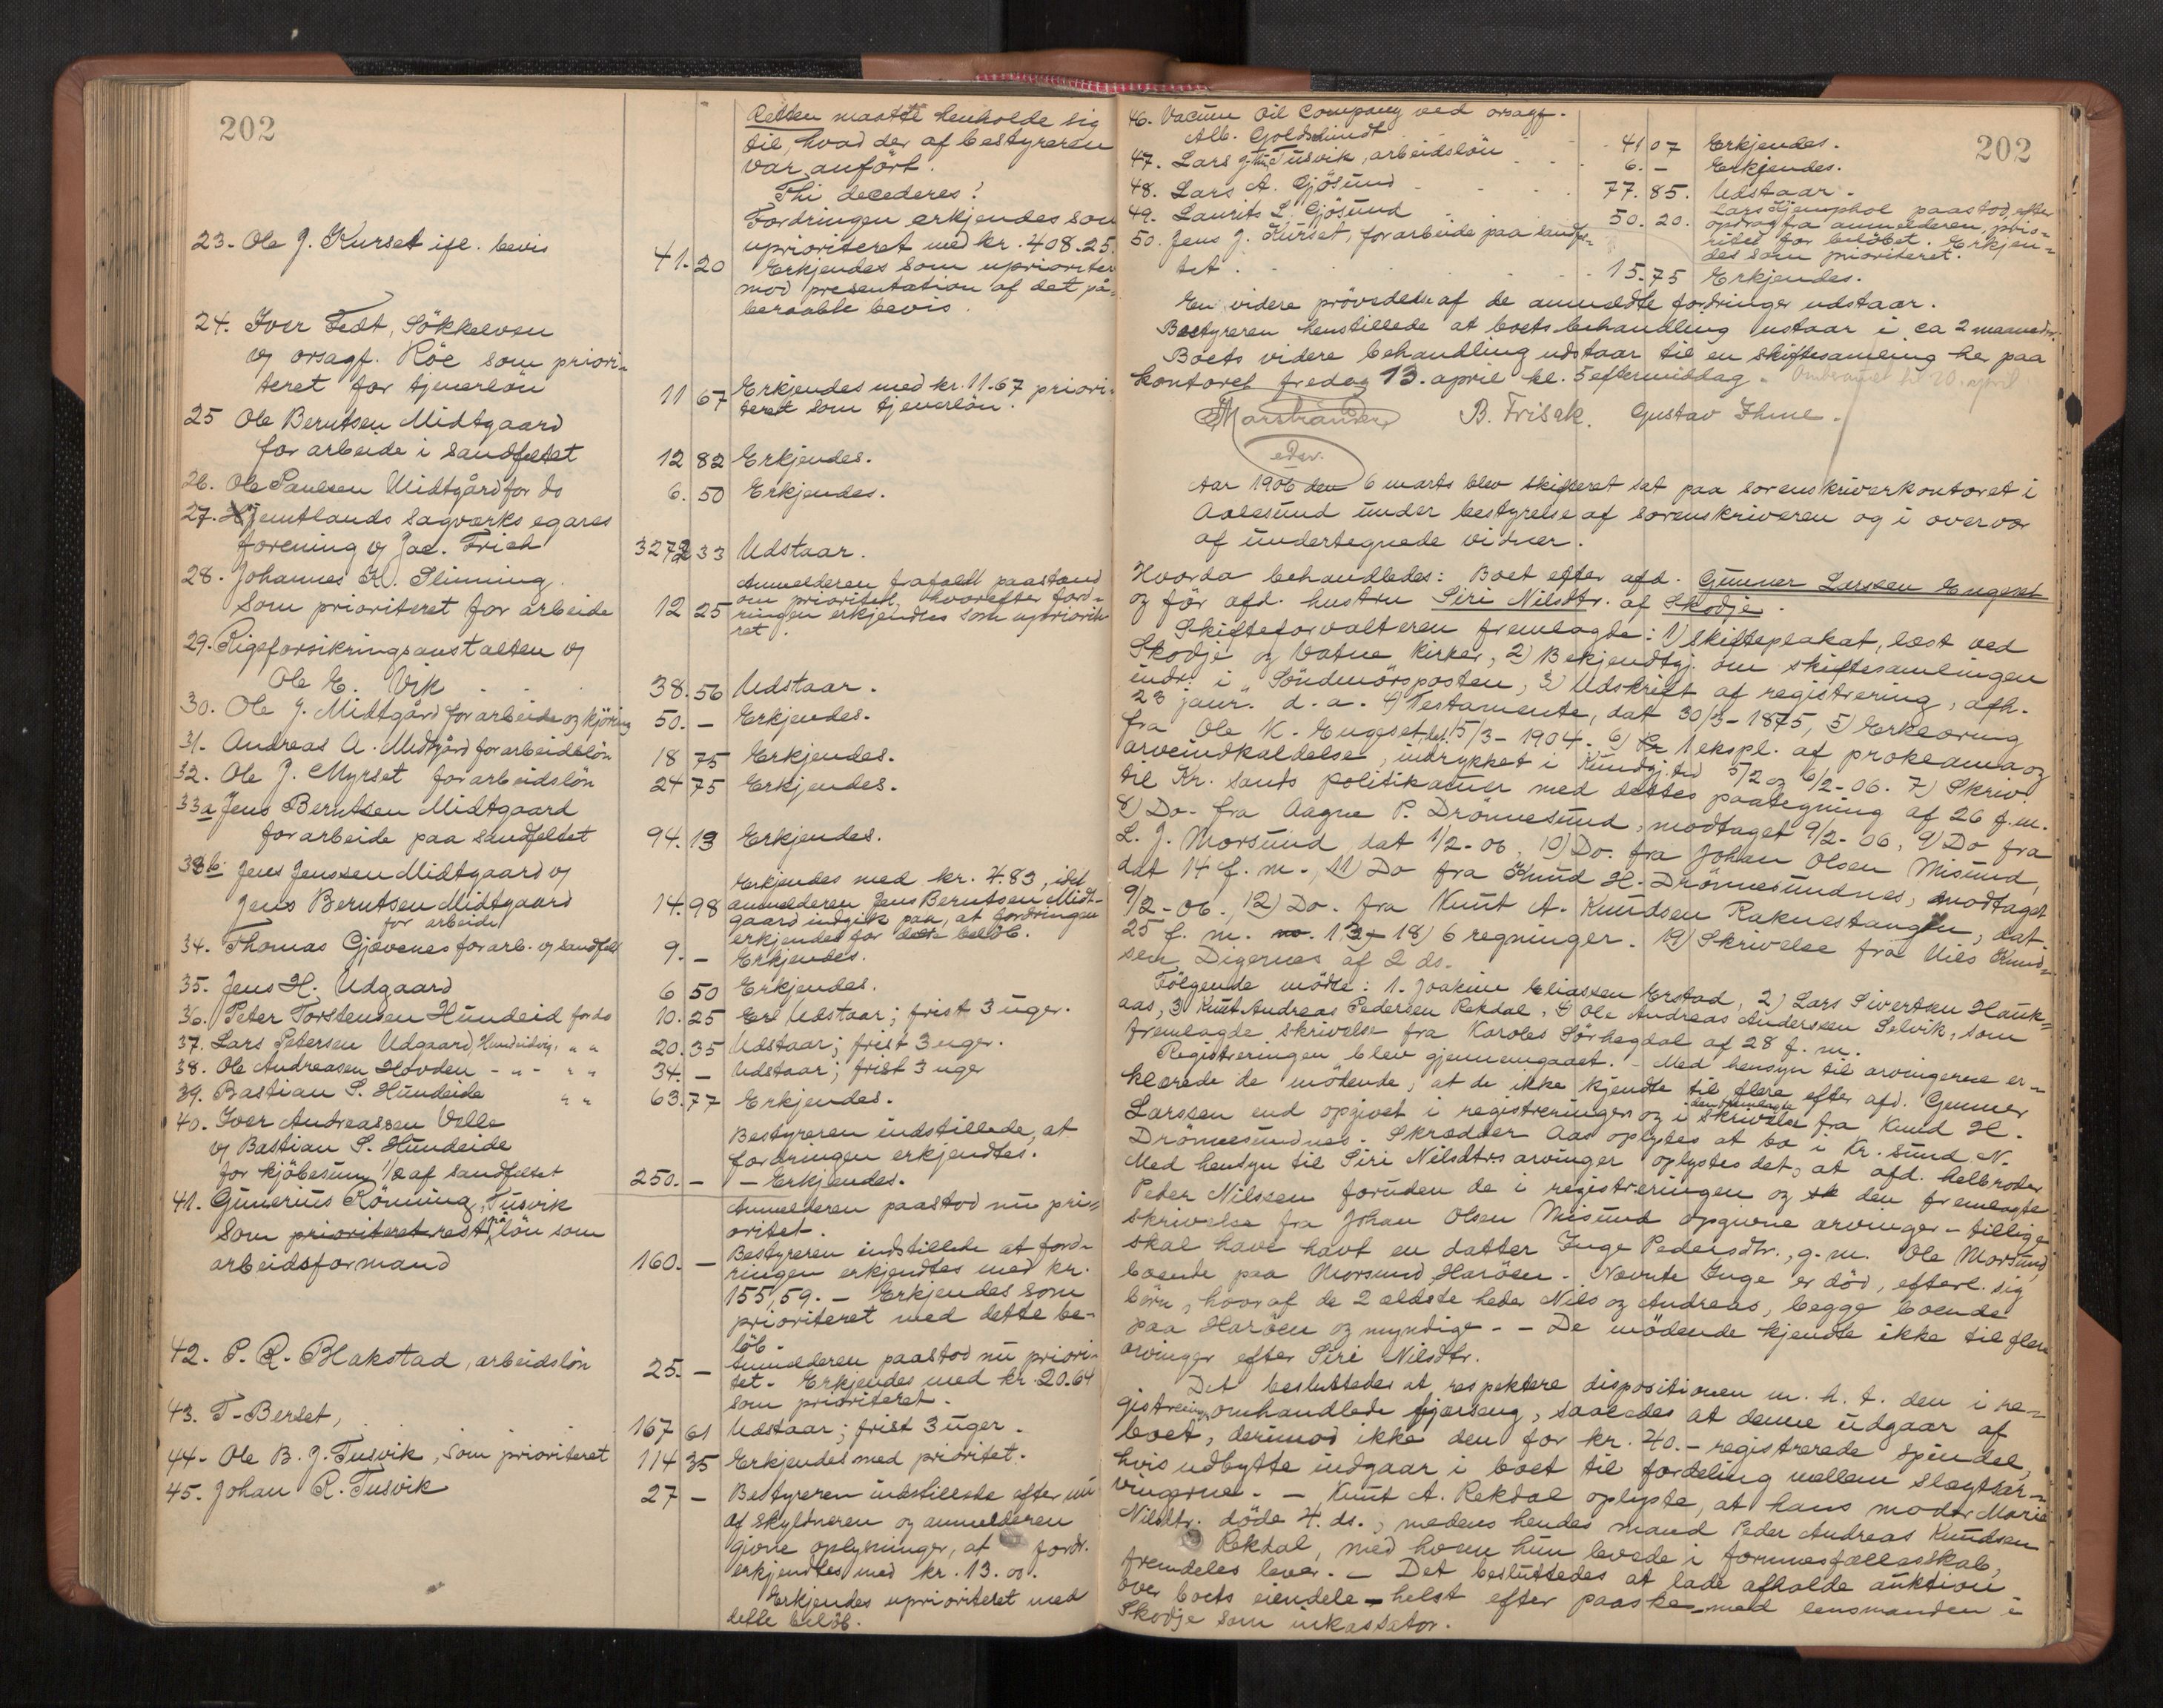 202
Retten maatte henholde sig
til, hvad der af bestyreren
var anført.
Thi decederes:
Fordringen erkjendes som
uprioriteret med kr. 408.25.
23. Ole J. Kurset ifl. bevis 41.20 Erkjendes som uprioriteret
mod presentation af det på-
beraabte bevis.
24. Iver Tedt, Sökkelven
v/ orsagf. Röe som priori-
teret for tjenerlön 11 67 Erkjendes med kr. 11.67 priori-
teret som tjenerlön.
25 Ole Berntsen Midtgaard
for arbeide i sandfeltet 12 82 Erkjendes.
26. Ole Paulsen Midtgård for do 6. 50 Erkjendes.
27. Jemtlands sagverks egares
forening v/ Jac. Frich 3272 33 Udstaar.
28. Johannes K. Slinning
som prioriteret for arbeide 12 25 Anmelderen frafaldt paastand
om prioritet, hvorefter ford-
ringen erkjendtes som uprioriti-
ret.
29. Rigsforsikringsanstalten v/
Ole E. Vik 38.56 Udstaar.
30. Ole J. Midtgård for arbeide og kjöring 50. - Erkjendes.
31. Andreas A. Midtgård for arbeidslön 18 75 Erkjendes.
32. Ole J. Myrset for arbeidslön 24 75 Erkjendes.
33a Jens Berntsen Midtgaard
for arbeide paa sandfeltet 94.13 Erkjendes.
33b. Jens Jenssen Midtgaard v/
Jens Berntsen Midtgaard
for arbeide 14.98 Erkjendes med kr. 4.83, idet
anmelderen Jens Berntsen Midt-
gaard indgik paa, at fordringen
erkjendes for dette belöb.
34. Thomas Gjævenes for arb. v/ sandfelt 9. - Erkjendes.
35. Jens H. Udgaard 6 50 Erkjendes.
36. Peter Torstensen Hundeid for do 10.25 Udstaar; frist 3 uger.
37. Lars Petersen Udgaard, Hundeidvig, " " 20.35 Udstaar; frist 3 uger.
38. Ole Andreasen Hovden - " - " " 34. - Udstaar; frist 3 uger
39. Bastian S. Hundeide " " 63.77 Erkjendes.
40. Iver Andreassen Velle
v/ Bastian S. Hundeide
for kjöbesum 1/2 af sandfeltet 250. - Bestyreren indstillede, at
fordringen erkjendtes.
- Erkjendes.
41. Gunerius Ronning, Tusvik
som prioriteret rest lön som
arbeidsformand 160. - Anmelderen paastod nu pri-
oritet.
Bestyreren indstillede at ford-
ringen erkjendtes med kr.
155,59. - Erkjendes som
prioriteret med dette be-
löb.
42. P. R. Blakstad, arbeidslön 25. - Anmelderen paastod nu priori-
tet. Erkjendes med kr. 20.64
som prioriteret.
43. T. Berset, 167 61 Udstaar; frist 3 uger.
44. Ole B. J. Tusvik, som prioriteret 114 35 Erkjendes med prioritet.
45. Johan R. Tusvik 27 - Bestyreren indstillede efter nu
af skyldneren og anmelderen
givne oplysninger, at fordr.
erkjendtes med kr. 13.00.
Erkjendes uprioriteret med
dette belöb.
202
46. Vacum Oil Company ved orsagf.
Alb. Goldschmidt 41 07 Erkjendes.
47. Lars Tusvik, arbeidslön 6. - Erkjendes.
48. Lars A. Gjösund 77.85. Udstaar.
49. Laurits L. Gjösund 50.20. Lars Hjemphol paastod, efter
opdrag fra anmelderen, prio-
ritet for belöbet. Erkjen-
des som prioriteret.
50. Jens J. Kurset, for arbeide paa sandfel-
tet 15.75 Erkjendes.
En videre prövedelse af de anmeldte fordringer udstaar.
Bestyreren henstillede at boets behandling ustaar i ca 2 maaneder.
Boets videre behandling udstaar til en skiftesamling her paa
kontoret fredag 13. april kl. 5 eftermiddag. Omberammet til 20. april
Marstrander B. Frisak. Gustav Ihme.
edsv.
Aar 1906 den 6 marts blev skifteret sat paa sorenskriverkontoret i
Aalesund under bestyrelse af sorenskriveren og i overvær
af undertegnede vidner.
Hvorda behandledes: Boet efter afd. Gunner Larssen Engeset
og för afd. hustru Siri Nilsdtr. af Skodje.
Skifteforvalteren fremlagde: 1) Skifteplakat, læst ved
Skodje og Vatne Kirker, 2) Bekjendtgj. om skiftesamlingen
indr. i "Söndmörsposten, 3) Udskrift af registrering, afh.
23 janr. d.a. 4) Testamente, dat 30/3-1875, 5) Erklæring
fra Ole K. Engeset, dat 5/3-1904. 6) 1 ekspl. af proklama og
arveindkaldelse, indrykket i Kundgj. tid 5/2 og 6/2-06. 7) Skriv.
til Kr. sunds politikamer med dettes paategning af 26 f.m.
8) Do. fra Aagne P. Drönnesund, modtaget 9/2-06, 9) Do fra
L. J. Morsund, dat 1/2-06, 10) Do. fra Johan Olsen Misund,
dat 14 f.m., 11) Do fra Knud H. Drönnesundnes, modtaget
9/2-06. 12) Do. fra Knut A. Knudsen Raknestangen, dat.
25 f.m. 13 - 18) 6 regninger. 19) Skrivelse fra Nils Knud-
sen Digernes af 2 ds.
Fölgende mödte: 1. Joakim Eliassen Erstad, 2) Lars Sivertsen Hauk-
aas, 3 Knut Andreas Pedersen Rekdal, 4) Ole Andreas Anderssen Selvik, som
fremlagde skrivelse fra Karoles Sörhegdal af 28 f.m.
Registreringen blev gjennemgaaet. - Med hensyn til arvingerne er-
klærede de mödende, at de ikke kjendte til flere efter afd. Gunner
Larssen end opgivet i registreringen og i den fremlagte skrivelse fra Knud H.
Drönnesundnes. Skrædder Aas oplystes at bo i Kr. Sund N.
Med hensyn til Siri Nilsdtrs arvinger oplystes det, at afd. helbroder
Peder Nilssen foruden de i registreringen og den fremlagte
skrivelse fra Johan Olsen Misund opgivne arvinger - tillige
skal have havt en datter Inge Pedersdtr., g.m. Ole Morsund,
boende paa Morsund, Haröen. Nævnte Inge er död, efterl. sig
börn, hvoraf de 2 ældste heder Nils og Andreas, begge boende
paa Haröen og myndige. - De mödende kjendte ikke til flere
arvinger efter Siri Nilsdtr.
Det besluttedes at respektere dispositionen m.h.t. den i re-
gistreringen omhandlede fjærseng, saaledes at denne udgaar af
boet, derimod ikke den for kr. 40.- registrerede spindel,
hvis udbytte indgaar i boet til fordeling mellem slegtsar-
vingerne. - Knut A. Rekdal oplyste, at hans moder Marie
Nilsdtr. döde 4. ds., medens hendes mand Peder Andreas Knudsen
Rekdal, med hvem hun levede i formuesfællesskab,
fremdeles lever. - Det besluttedes at lade afholde auktion
over boets eiendele - helst efter paaske - med lensmanden i
Skodje som inkassator.